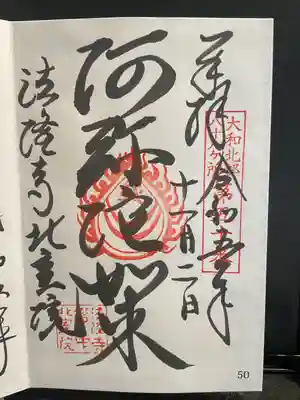 奉拝 令和五年
十一月二日
阿弥陀如来
法隆寺北室院
大和北部
八十八ヶ所
50